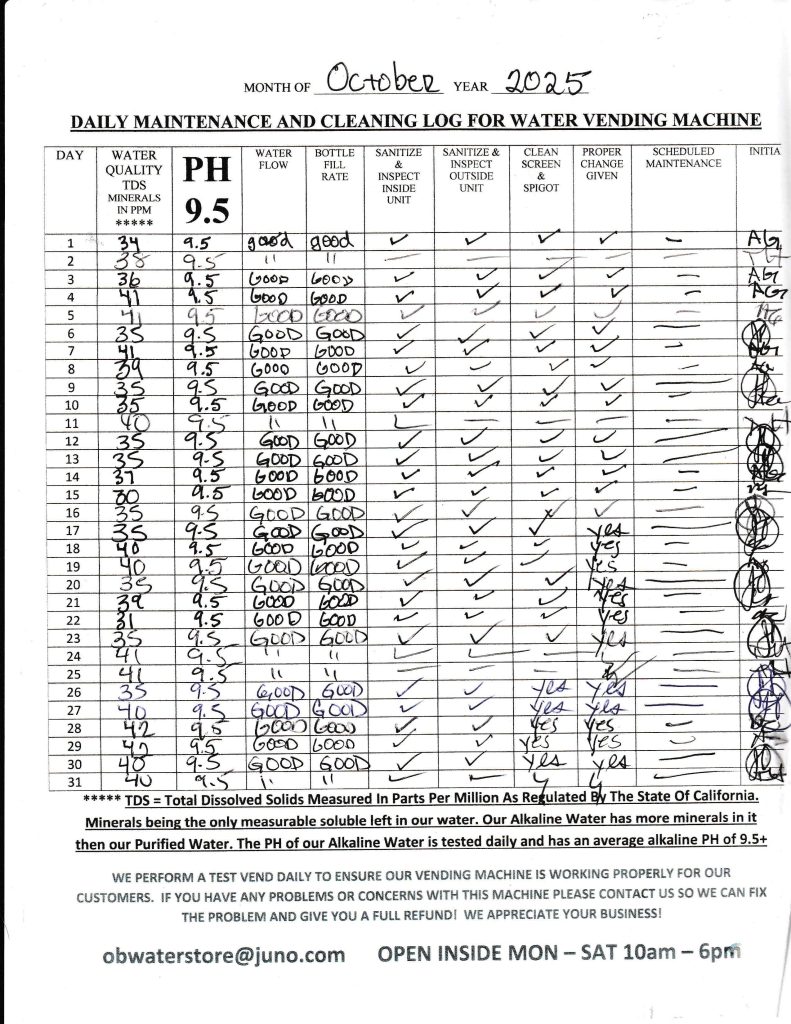 MONTH OF October YEAR 2025
DAILY MAINTENANCE AND CLEANING LOG FOR WATER VENDING MACHINE
DAY WATER QUALITY TDS MINERALS IN PPM ***** PH 9.5 WATER FLOW BOTTLE FILL RATE SANITIZE & INSPECT INSIDE UNIT SANITIZE & INSPECT OUTSIDE UNIT CLEAN SCREEN & SPIGOT PROPER CHANGE GIVEN SCHEDULED MAINTENANCE INITIA
1 34 9.5 good good ✓ ✓ ✓ ✓ – AG
2 38 9.5 " "
3 36 9.5 GOOD GOOD ✓ ✓ ✓ ✓ – AG
4 41 9.5 GOOD GOOD ✓ ✓ ✓ ✓ – AG
5 41 9.5 GOOD GOOD ✓ ✓ ✓ ✓ – AG
6 35 9.5 GOOD GOOD ✓ ✓ ✓ ✓ –
7 41 9.5 GOOD GOOD ✓ ✓ ✓ ✓ –
8 39 9.5 GOOD GOOD ✓ ✓ ✓ ✓ –
9 35 9.5 GOOD GOOD ✓ ✓ ✓ ✓ –
10 35 9.5 GOOD GOOD ✓ ✓ ✓ ✓ –
11 40 9.5 " "
12 35 9.5 GOOD GOOD ✓ ✓ ✓ ✓ –
13 35 9.5 GOOD GOOD ✓ ✓ ✓ ✓ –
14 37 9.5 GOOD GOOD ✓ ✓ ✓ ✓ – AG
15 9.5 GOOD GOOD ✓ ✓ ✓ ✓ –
16 35 9.5 GOOD GOOD ✓ ✓ ✓ –
17 35 9.5 GOOD GOOD ✓ ✓ ✓ yes –
18 40 9.5 GOOD GOOD ✓ ✓ ✓ yes –
19 40 9.5 GOOD GOOD ✓ ✓ ✓ yes –
20 35 9.5 GOOD GOOD ✓ ✓ ✓ yes –
21 39 9.5 GOOD GOOD ✓ ✓ ✓ yes –
22 31 9.5 GOOD GOOD ✓ ✓ ✓ yes –
23 35 9.5 GOOD GOOD ✓ ✓ ✓ yes –
24 41 9.5 " "
25 41 9.5 " "
26 35 9.5 GOOD GOOD ✓ ✓ yes yes –
27 40 9.5 GOOD GOOD ✓ ✓ yes yes –
28 42 9.5 GOOD GOOD ✓ ✓ yes yes –
29 42 9.5 GOOD GOOD ✓ ✓ yes yes
30 40 9.5 GOOD GOOD ✓ ✓ yes yes –
31 40 9.5 " " y y
***** TDS = Total Dissolved Solids Measured In Parts Per Million As Regulated By The State Of California.
Minerals being the only measurable soluble left in our water. Our Alkaline Water has more minerals in it
then our Purified Water. The PH of our Alkaline Water is tested daily and has an average alkaline PH of 9.5+
WE PERFORM A TEST VEND DAILY TO ENSURE OUR VENDING MACHINE IS WORKING PROPERLY FOR OUR
CUSTOMERS. IF YOU HAVE ANY PROBLEMS OR CONCERNS WITH THIS MACHINE PLEASE CONTACT US SO WE CAN FIX
THE PROBLEM AND GIVE YOU A FULL REFUND! WE APPRECIATE YOUR BUSINESS!
obwaterstore@juno.com OPEN INSIDE MON – SAT 10am – 6pm